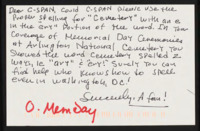 Dear C-SPAN, Could C-SPAN please use the
proper spelling for "cemetery" with an e
in the "ery" portion of the word. In the
coverage of Memorial Day Ceremonies
at Arlington National Cemetery you
showed the word Cemetery spelled 2
ways, ie "ary" & "ery" Surely you can
find help who knows how to spell
even in Washington, DC!
Sincerely, A fan!
O. Mem Day